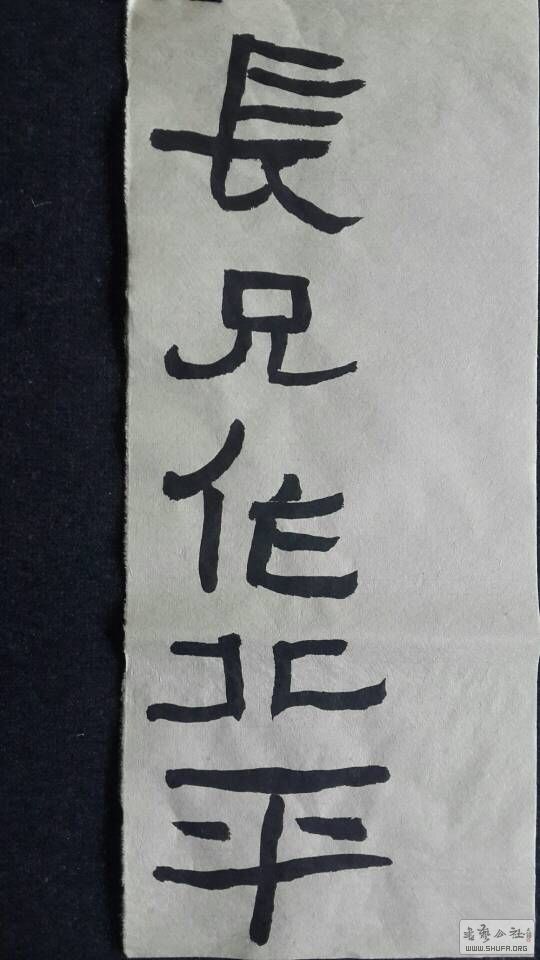 長兄作北平
书艺公社
WWW.SHUFA.ORG